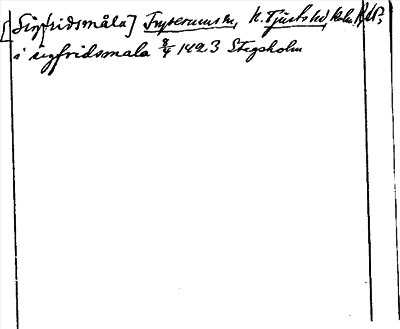 [Sigfridsmåla] Tryserums sn, N. Tjusts hd, Kalm. l.
i sigfridsmala 9/4 1423 Stegsholm